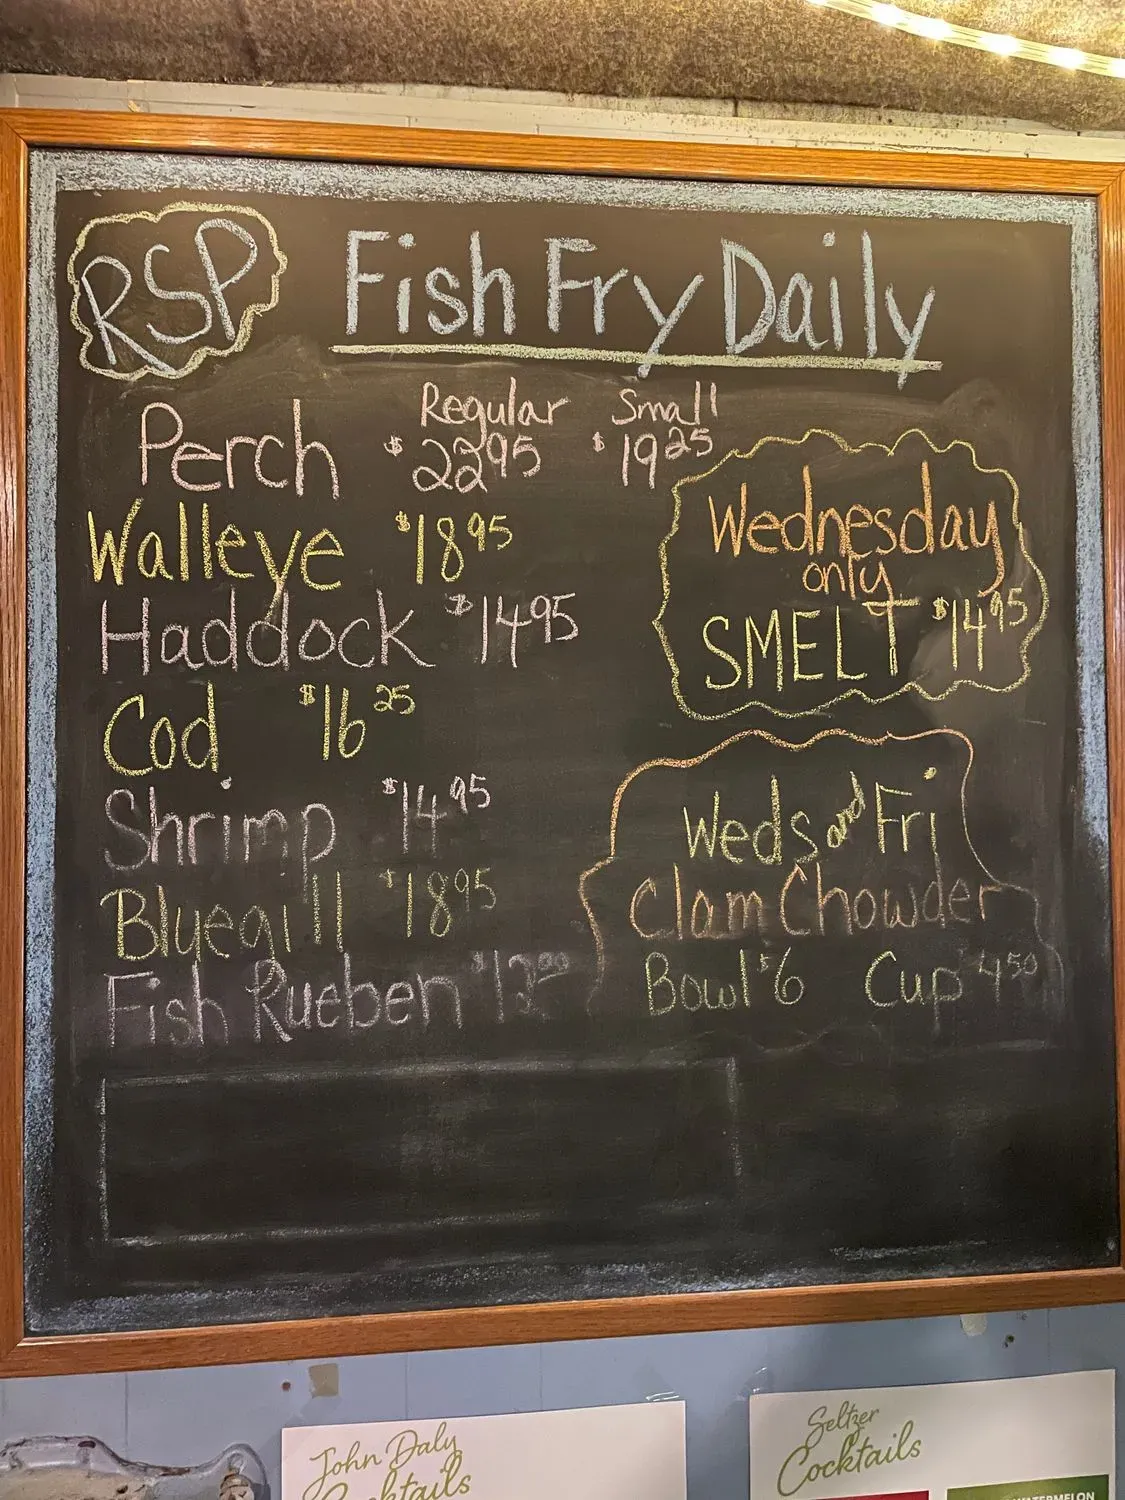 RSP
Fish Fry Daily
Regular Small
Perch $22.95 $19.25
Walleye $18.95
Haddock $14.95
Cod $16.25
Shrimp $14.95
Bluegill $18.95
Fish Rueben $12.00
Wednesday
only
SMELT $14.95
Weds and Fri
Clam Chowder
Bowl $6 Cup $4.50
John Daly
Cocktails
Seltzer
Cocktails
WATERMELON